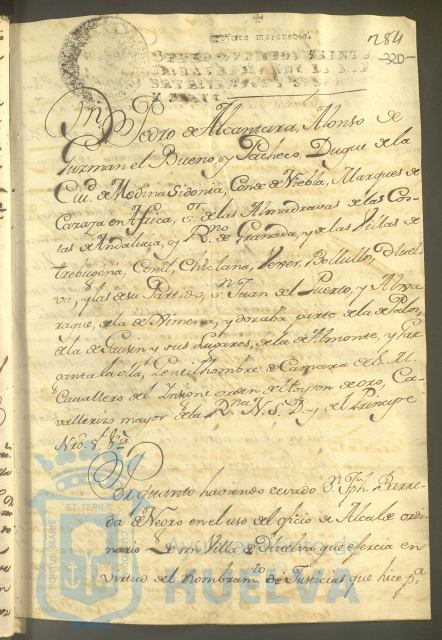 284
-320-
Veinte maravedis.
SELLO QUARTO, VEINTE
MARAVEDIS, AÑO DE MIL
SETECIENTOS Y SESEN-
Dn. Pedro de Alcantara, Alonso de
Guzman el Bueno, y Pacheco, Duque de la
Ciud. de Medina Sidonia, Conde de Niebla, Marques de
Cazaza en Africa, Sor. de las Almadravas de las Cos-
tas de Andalucia, y Rno. de Granada, y de las Villas de
trebugena, Conil, Chiclana, Vexer, Bollullos, Huel-
va, y las de su Partido, Sn. Juan del Puerto, y Alxa-
raque, de la de Ximena, y dozaba parte de la de Palos,
de la de Gausin y sus Lugares, de la de Almonte, y Gar-
ganta la olla, Gentilhombre de Camara de S. M.
Cavallero del Insigne orden del toyson de oro, Ca-
vallerizo mayor de la Rna. N. S. D. y del Principe
Nro. Sr. &a
Por quanto haviendo cesado Dn. Jph. Barre-
da de Negro en el uso del oficio de Alcalde ordi-
nario de mi Villa de Huelva que exercia en
virtud del Nombramto. de Justicias que hice pa.
PORTUS MARIS ET TERRÆ CUSTODIA
Ayuntamiento de
HUELVA